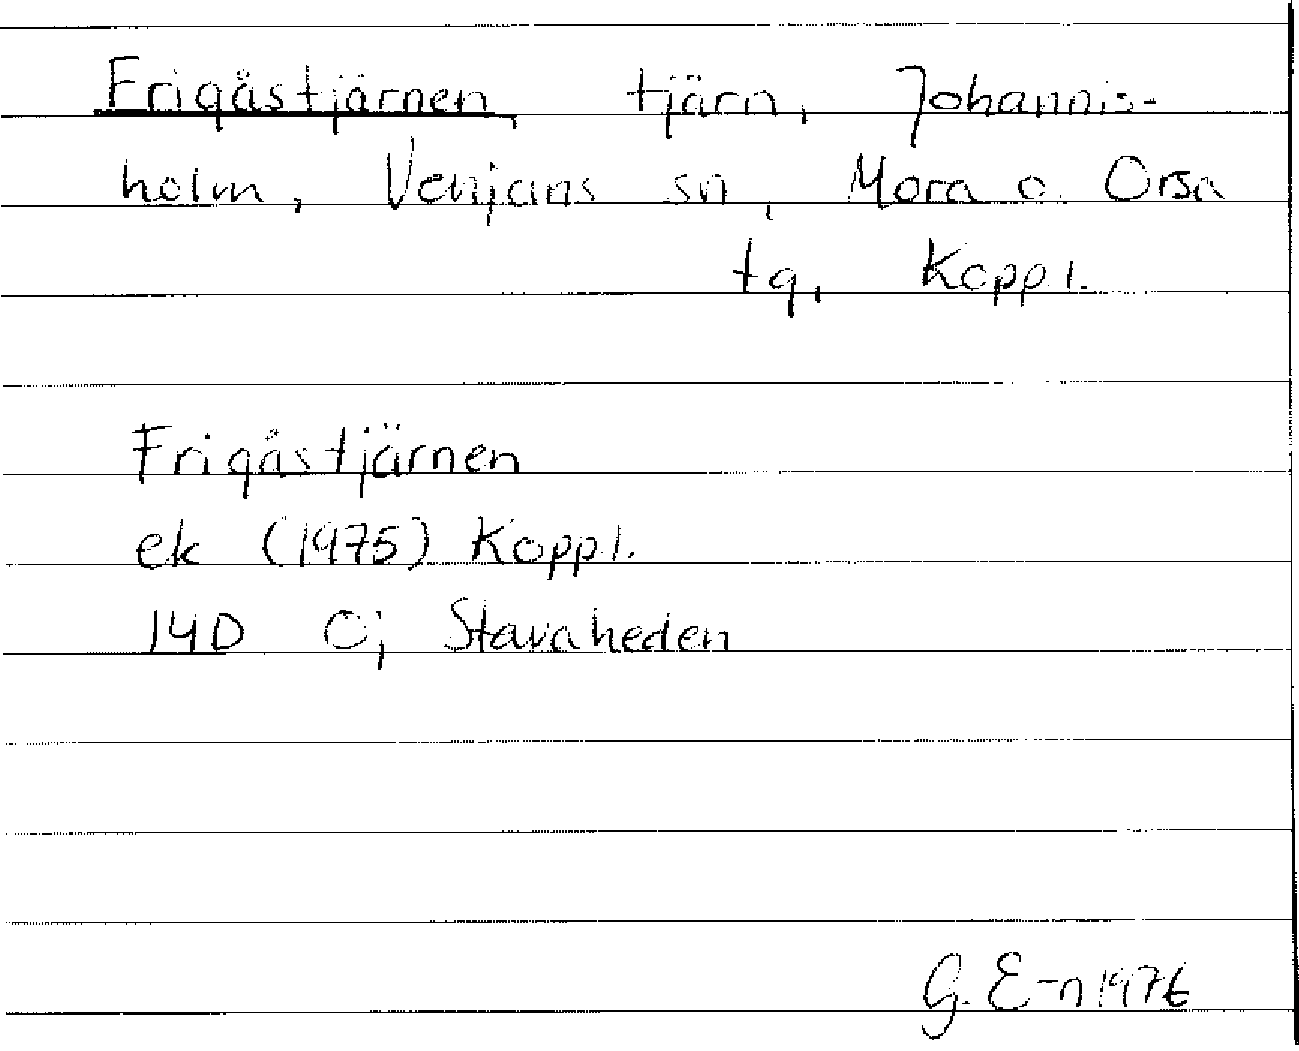 Frigåstjärnen, tjärn, Johannis-
holm, Venjans sn, Mora o. Orsa
tg, Koppl.
Frigåstjärnen
ek (1975) Koppl.
14D Oj Stavaheden
G. E-n 1976